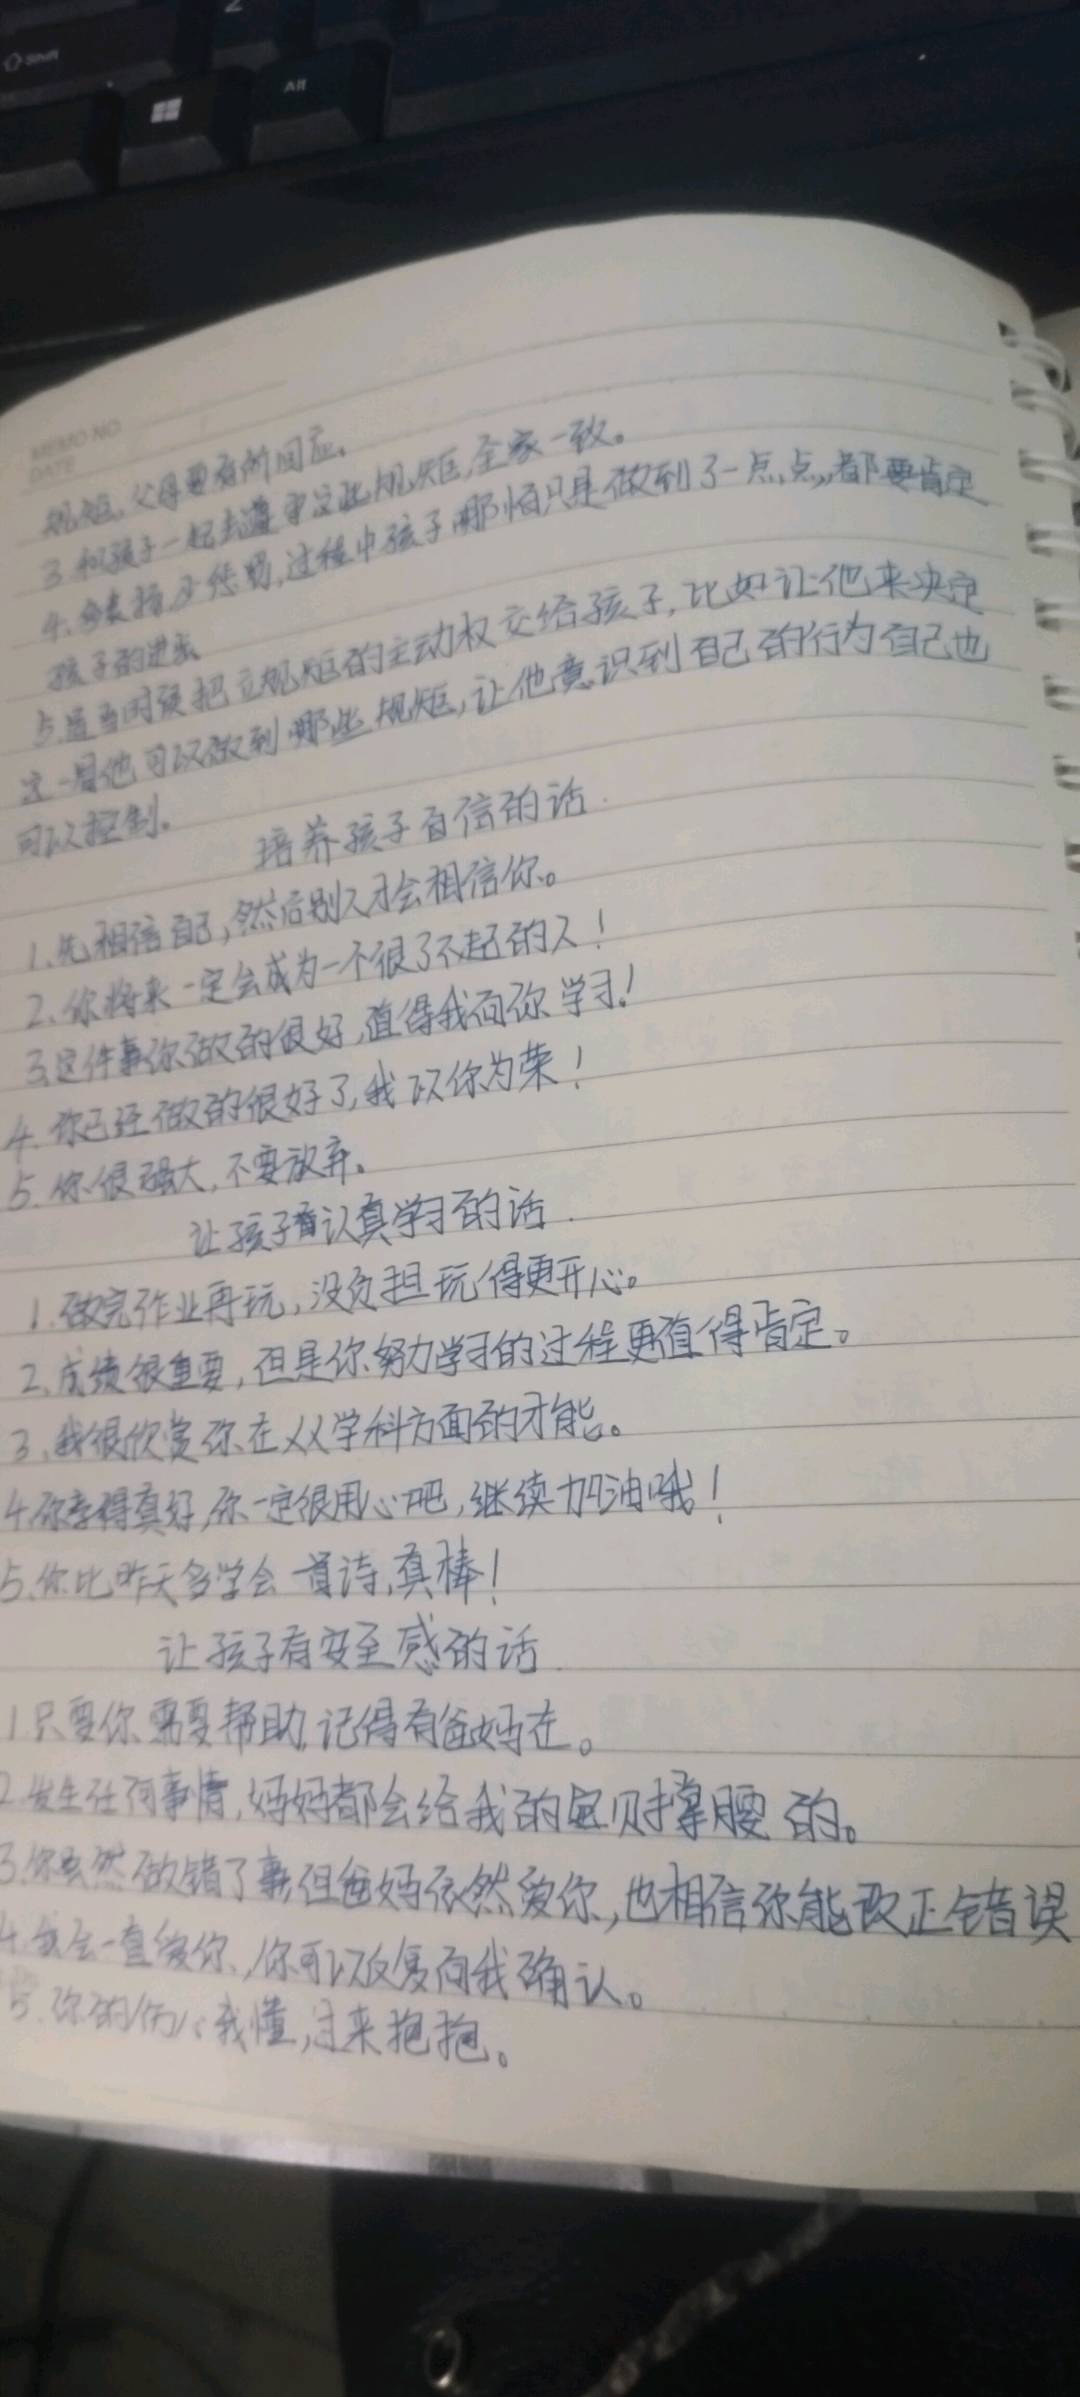 Shift
Alt
MEMO NO
DATE
规矩,父母要有所回应。
3.和孩子一起去遵守这些规矩,全家一致。
4.多表扬,少惩罚,过程中孩子哪怕只是做到了一点点,都要肯定
孩子的进步
5.适当时候把立规矩的主动权交给孩子,比如让他来决定
这一周他可以做到哪些规矩,让他意识到自己的行为自己也
可以控制。
培养孩子自信的话
1.先相信自己,然后别人才会相信你。
2、你将来一定会成为一个很了不起的人!
3.这件事你做的很好,值得我向你学习!
4.你已经做的很好了,我以你为荣!
5.你很强大,不要放弃。
让孩子认真学习的话
1.做完作业再玩,没负担玩得更开心。
2、成绩很重要,但是你努力学习的过程更值得肯定。
3、我很欣赏你在XX学科方面的才能。
4.你写得真好,你一定很用心吧,继续加油哦!
5.你比昨天多学会一首诗,真棒!
让孩子有安全感的话
1.只要你需要帮助,记得有爸妈在。
2.发生任何事情,妈妈都会给我的宝贝撑腰的。
3.你虽然做错了事,但爸妈依然爱你,也相信你能改正错误
4.我会一直爱你,你可以反复向我确认。
5.你的伤心我懂,过来抱抱。